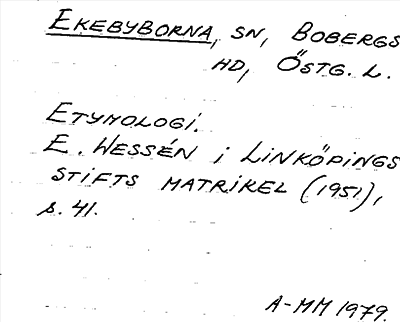 EKEBYBORNA, SN, BOBERGS
HD, ÖSTG. L.
ETYMOLOGI.
E. WESSÉN i LINKÖPINGS
STIFTS MATRIKEL (1951),
s. 41.
A-MM 1979.